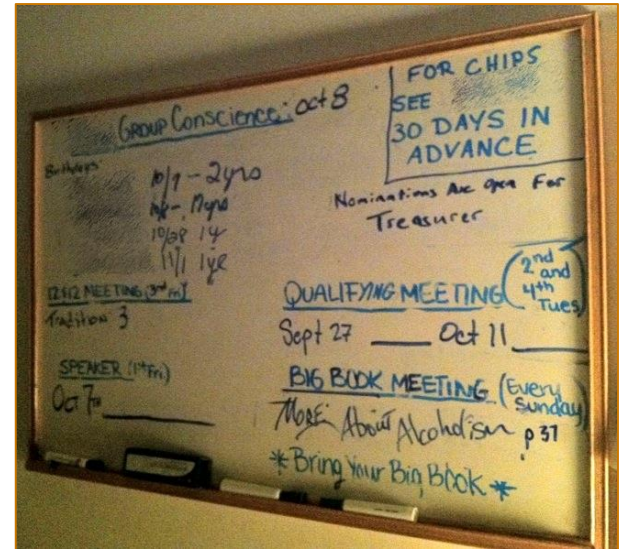 GROUP CONSCIENCE: oct 8
FOR CHIPS
SEE
30 DAYS IN
ADVANCE
Birthdays
10/7 - 2yrs
17yrs
10/28 1yr
11/1 1yr
Nominations Are Open For
Treasurer
12 & 12 MEETING (3rd Fri)
Tradition 3
SPEAKER (1st Fri)
Oct 7th
QUALIFYING MEETING (2nd and 4th Tues)
Sept 27 ____ Oct 11 ____
BIG BOOK MEETING (Every Sunday)
MORE About Alcoholism p 37
*Bring Your Big Book*